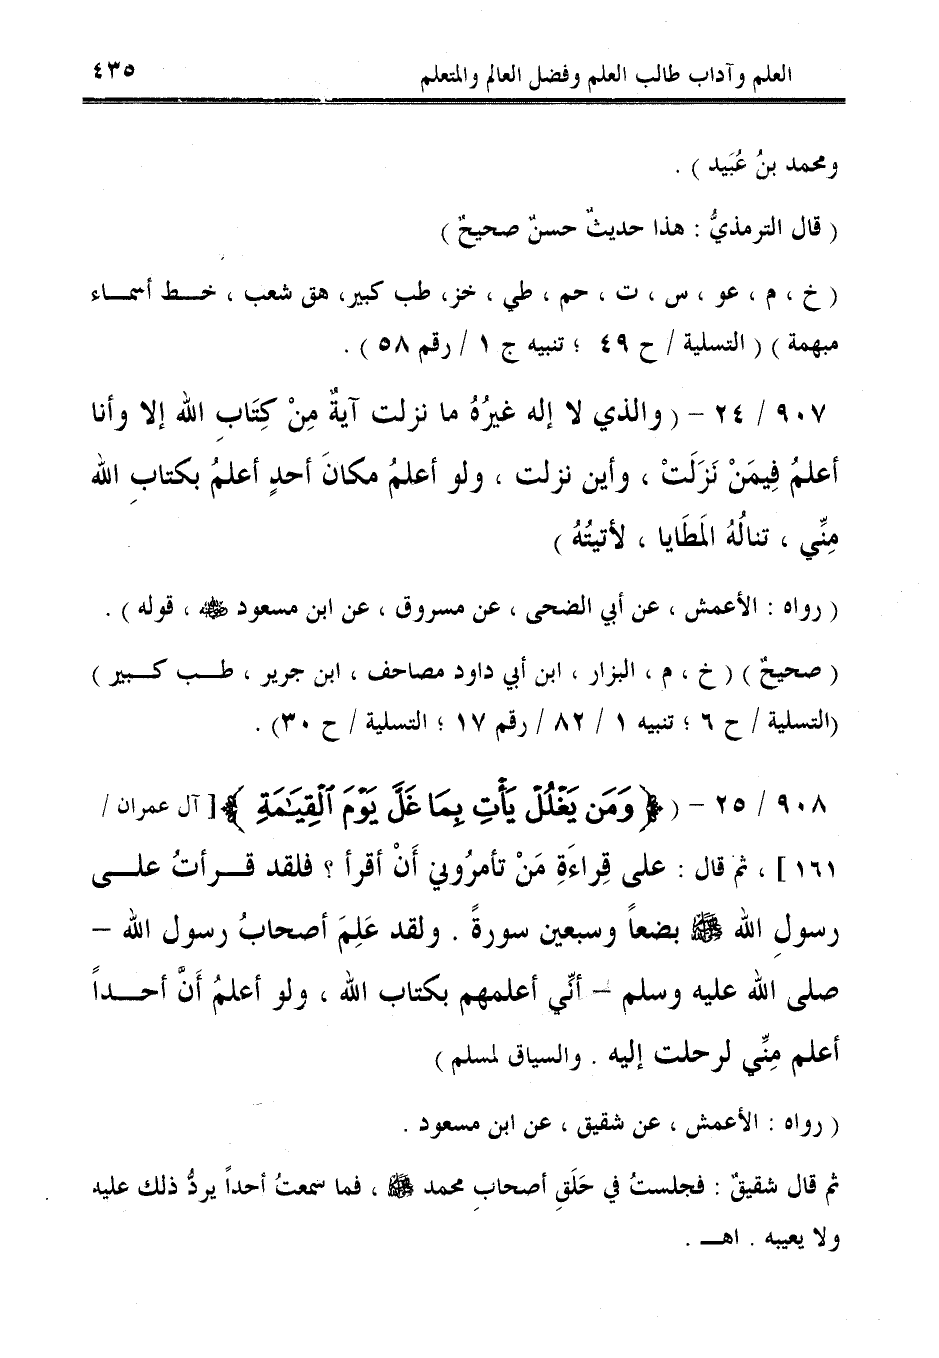 العلم وآداب طالب العلم وفضل العالم والمتعلم ٤٣٥
ومحمد بنُ عُبَيد ) .
( قال الترمذيُّ : هذا حديثٌ حسنٌ صحيحٌ )
( خ ، م ، عو ، س ، ت ، حم ، طي ، خز، طب كبير، هق شعب ، خـــط أسمـــاء
مبهمة ) ( التسلية / ح ٤٩ ؛ تنبيه ج ١ / رقم ٥٨ ) .
٩٠٧ / ٢٤ – ( والذي لا إله غيرُهُ ما نزلت آيةٌ مِنْ كِتَابِ الله إلا وأنا
أعلمُ فِيمَنْ نَزَلَتْ ، وأين نزلت ، ولو أعلمُ مكانَ أحدٍ أعلمُ بكتابِ الله
مِنِّي ، تنالُهُ المَطَايا ، لأتيتُهُ )
( رواه : الأعمش ، عن أبي الضحى ، عن مسروق ، عن ابن مسعود ﵁ ، قوله ) .
( صحيحٌ ) ( خ ، م ، البزار ، ابن أبي داود مصاحف ، ابن جرير ، طـــب كـــبير )
(التسلية / ح ٦ ؛ تنبيه ١ / ٨٢ / رقم ١٧ ؛ التسلية / ح ٣٠) .
٩٠٨ / ٢٥ – ( ﴿ وَمَن يَغْلُلْ يَأْتِ بِمَا غَلَّ يَوْمَ ٱلْقِيَـٰمَةِ ﴾ [ آل عمران /
١٦١ ] ، ثم قال : على قِراءَةِ مَنْ تأمرُوني أَنْ أقرأ ؟ فلقد قـــرأتُ علـــى
رسولِ الله ﷺ بضعاً وسبعين سورةً . ولقد عَلِمَ أصحابُ رسول الله –
صلى الله عليه وسلم – أنِّي أعلمهم بكتاب الله ، ولو أعلمُ أنَّ أحـــداً
أعلم مِنِّي لرحلت إليه . والسياق لمسلم )
( رواه : الأعمش ، عن شقيق ، عن ابن مسعود .
ثم قال شقيقٌ : فجلستُ في حَلَقِ أصحابِ محمد ﷺ ، فما سمعتُ أحداً يردُّ ذلك عليه
ولا يعيبه . اهـــ .